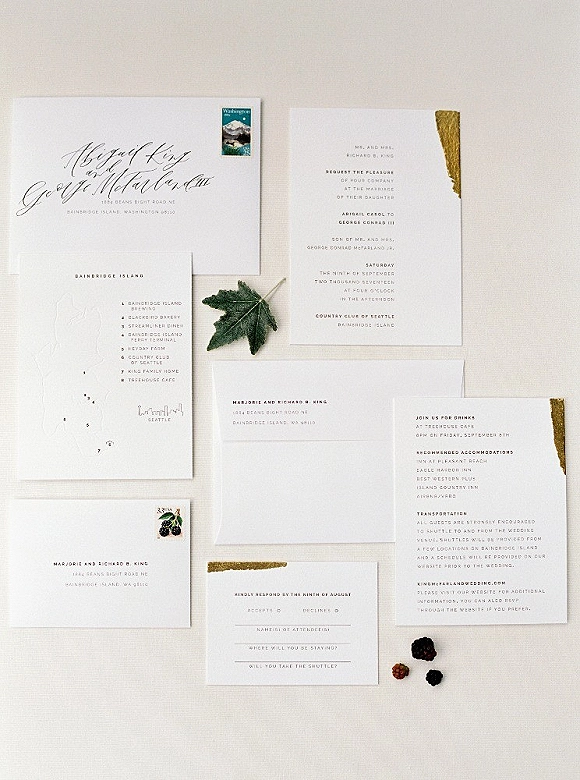 Washington
Abigail King
and
George McFarland III
BAINBRIDGE ISLAND, WASHINGTON 98110
MR. AND MRS.
RICHARD B. KING
REQUEST THE PLEASURE
OF YOUR COMPANY
AT THE MARRIAGE
OF THEIR DAUGHTER
ABIGAIL CAROL TO
GEORGE CONRAD III
SON OF MR. AND MRS.
GEORGE CONRAD MCFARLAND JR.
SATURDAY
THE NINTH OF SEPTEMBER
TWO THOUSAND SEVENTEEN
AT FOUR O'CLOCK
IN THE AFTERNOON
COUNTRY CLUB OF SEATTLE
BAINBRIDGE ISLAND
BAINBRIDGE ISLAND
1 BAINBRIDGE ISLAND
BREWING
2 BLACKBIRD BAKERY
3 STREAMLINER DINER
4 BAINBRIDGE ISLAND
FERRY TERMINAL
5 HEYDAY FARM
6 COUNTRY CLUB
OF SEATTLE
7 KING FAMILY HOME
8 TREEHOUSE CAFE
SEATTLE
MARJORIE AND RICHARD B. KING
BAINBRIDGE ISLAND, WA 98110
JOIN US FOR DRINKS
AT TREEHOUSE CAFE
8PM ON FRIDAY, SEPTEMBER 8TH
RECOMMENDED ACCOMMODATIONS
INN AT PLEASANT BEACH
EAGLE HARBOR INN
BEST WESTERN PLUS
ISLAND COUNTRY INN
AIRBNB/VRBO
TRANSPORTATION
ALL GUESTS ARE STRONGLY ENCOURAGED
TO SHUTTLE TO AND FROM THE WEDDING
VENUE. SHUTTLES WILL BE PROVIDED FROM
A FEW LOCATIONS ON BAINBRIDGE ISLAND
AND A SCHEDULE WILL BE PROVIDED ON OUR
WEBSITE PRIOR TO THE WEDDING.
KINGMCFARLANDWEDDING.COM
PLEASE VISIT OUR WEBSITE FOR ADDITIONAL
INFORMATION. YOU CAN ALSO RSVP
THROUGH THE WEBSITE IF YOU PREFER.
MARJORIE AND RICHARD B. KING
BAINBRIDGE ISLAND, WA 98110
KINDLY RESPOND BY THE NINTH OF AUGUST
ACCEPTS DECLINES
NAME(S) OF ATTENDEE(S)
WHERE WILL YOU BE STAYING?
WILL YOU TAKE THE SHUTTLE?